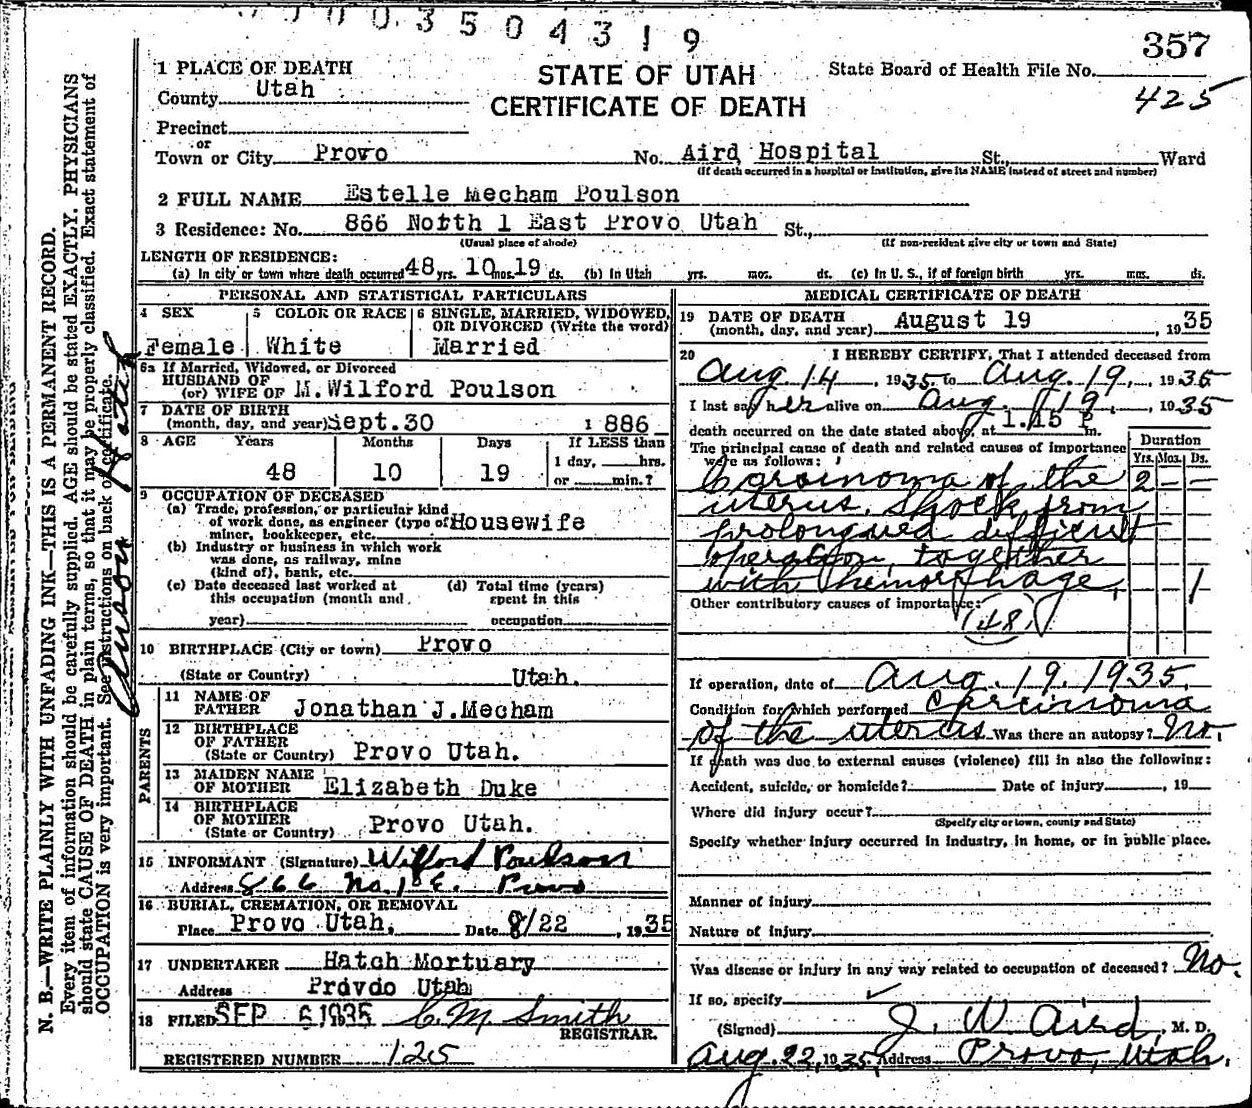 0 0 3 5 0 4 3 1 9
357
1 PLACE OF DEATH
STATE OF UTAH
State Board of Health File No.
County Utah
CERTIFICATE OF DEATH
425
Precinct
or
Town or City Provo No. Aird Hospital St., Ward
(If death occurred in a hospital or institution, give its NAME instead of street and number)
2 FULL NAME Estelle Mecham Poulson
3 Residence: No. 866 North 1 East Provo Utah St.,
(Usual place of abode) (If non-resident give city or town and State)
LENGTH OF RESIDENCE:
(a) In city or town where death occurred 48 yrs. 10 mos. 19 ds. (b) In Utah yrs. mos. ds. (c) In U. S., if of foreign birth yrs. mos. ds.
PERSONAL AND STATISTICAL PARTICULARS
4 SEX 5 COLOR OR RACE 6 SINGLE, MARRIED, WIDOWED, OR DIVORCED (Write the word)
Female White Married
6a If Married, Widowed, or Divorced
HUSBAND OF
(or) WIFE OF M.Wilford Poulson
7 DATE OF BIRTH
(month, day, and year) Sept.30 1886
8 AGE Years Months Days If LESS than
48 10 19 1 day, hrs.
or min.?
9 OCCUPATION OF DECEASED
(a) Trade, profession, or particular kind
of work done, as engineer (type of Housewife
miner, bookkeeper, etc.
(b) Industry or business in which work
was done, as railway, mine
(kind of), bank, etc.
(c) Date deceased last worked at (d) Total time (years)
this occupation (month and spent in this
year) occupation
10 BIRTHPLACE (City or town) Provo
(State or Country) Utah.
PARENTS
11 NAME OF
FATHER Jonathan J.Mecham
12 BIRTHPLACE
OF FATHER
(State or Country) Provo Utah.
13 MAIDEN NAME
OF MOTHER Elizabeth Duke
14 BIRTHPLACE
OF MOTHER
(State or Country) Provo Utah.
15 INFORMANT (Signature) Wilford Poulson
Address 866 No. 1st E. Provo
16 BURIAL, CREMATION, OR REMOVAL
Place Provo Utah. Date 8/22, 1935
17 UNDERTAKER Hatch Mortuary
Address Provdo Utah
18 FILED SEP 6 1935 C. M Smith
REGISTRAR.
REGISTERED NUMBER 125
MEDICAL CERTIFICATE OF DEATH
19 DATE OF DEATH
(month, day, and year) August 19, 1935
20 I HEREBY CERTIFY, That I attended deceased from
Aug 14, 1935 to Aug. 19, 1935
I last saw her alive on Aug. 19, 1935
death occurred on the date stated above, at 1.15 P m.
The principal cause of death and related causes of importance
were as follows:
Duration
Yrs. Mos. Ds.
Carcinoma of the 2 - -
uterus. Shock from
prolongued difficult
operation, together
with hemorrhage, 1
Other contributory causes of importance:
(48)
If operation, date of Aug. 19. 1935.
Condition for which performed Carcinoma
of the uterus Was there an autopsy? No.
If death was due to external causes (violence) fill in also the following:
Accident, suicide, or homicide? Date of injury, 19
Where did injury occur?
(Specify city or town, county and State)
Specify whether injury occurred in industry, in home, or in public place.
Manner of injury
Nature of injury
Was disease or injury in any way related to occupation of deceased? No.
If so, specify
(Signed) J. W. Aird, M. D.
Aug. 22, 1935, Address Provo, Utah.
N. B.—WRITE PLAINLY WITH UNFADING INK—THIS IS A PERMANENT RECORD.
Every item of information should be carefully supplied. AGE should be stated EXACTLY. PHYSICIANS
should state CAUSE OF DEATH in plain terms, so that it may be properly classified. Exact statement of
OCCUPATION is very important. See instructions on back of certificate.
Anson Hatch